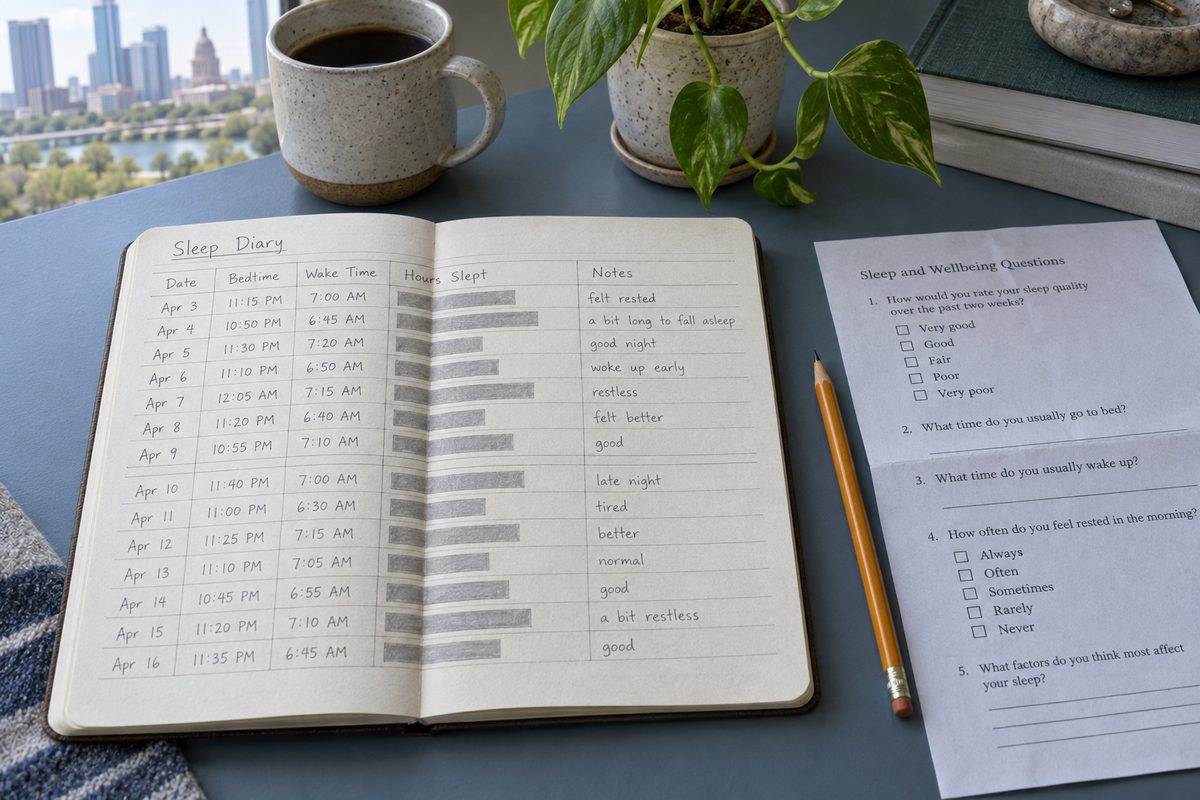 Sleep Diary
Date Bedtime Wake Time Hours Slept Notes
Apr 3 11:15 PM 7:00 AM felt rested
Apr 4 10:50 PM 6:45 AM a bit long to fall asleep
Apr 5 11:30 PM 7:20 AM good night
Apr 6 11:10 PM 6:50 AM woke up early
Apr 7 12:05 AM 7:15 AM restless
Apr 8 11:20 PM 6:40 AM felt better
Apr 9 10:55 PM 7:10 AM good
Apr 10 11:40 PM 7:00 AM late night
Apr 11 11:00 PM 6:30 AM tired
Apr 12 11:25 PM 7:15 AM better
Apr 13 11:10 PM 7:05 AM normal
Apr 14 10:45 PM 6:55 AM good
Apr 15 11:20 PM 7:10 AM a bit restless
Apr 16 11:35 PM 6:45 AM good
Sleep and Wellbeing Questions
1. How would you rate your sleep quality
over the past two weeks?
Very good
Good
Fair
Poor
Very poor
2. What time do you usually go to bed?
3. What time do you usually wake up?
4. How often do you feel rested in the morning?
Always
Often
Sometimes
Rarely
Never
5. What factors do you think most affect
your sleep?